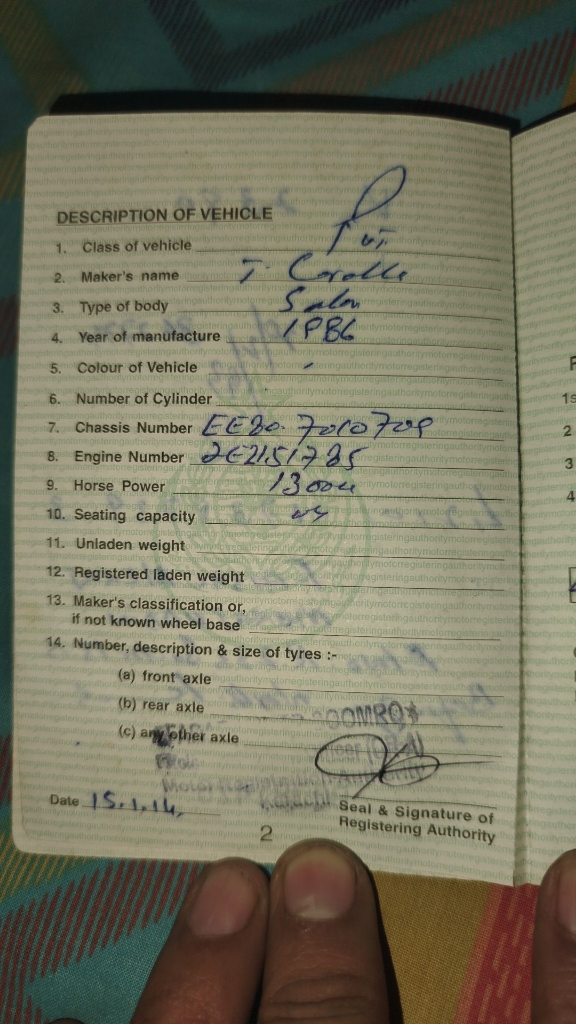 DESCRIPTION OF VEHICLE
1. Class of vehicle Pvt.
2. Maker's name T. Corolla
3. Type of body Salon
4. Year of manufacture 1986
5. Colour of Vehicle
6. Number of Cylinder
7. Chassis Number EE80.7010709
8. Engine Number 2E2151785
9. Horse Power 1300cc
10. Seating capacity
11. Unladen weight
12. Registered laden weight
13. Maker's classification or,
if not known wheel base
14. Number, description & size of tyres :-
(a) front axle
(b) rear axle
(c) any other axle
Date 15.1.14.
Seal & Signature of
Registering Authority
2